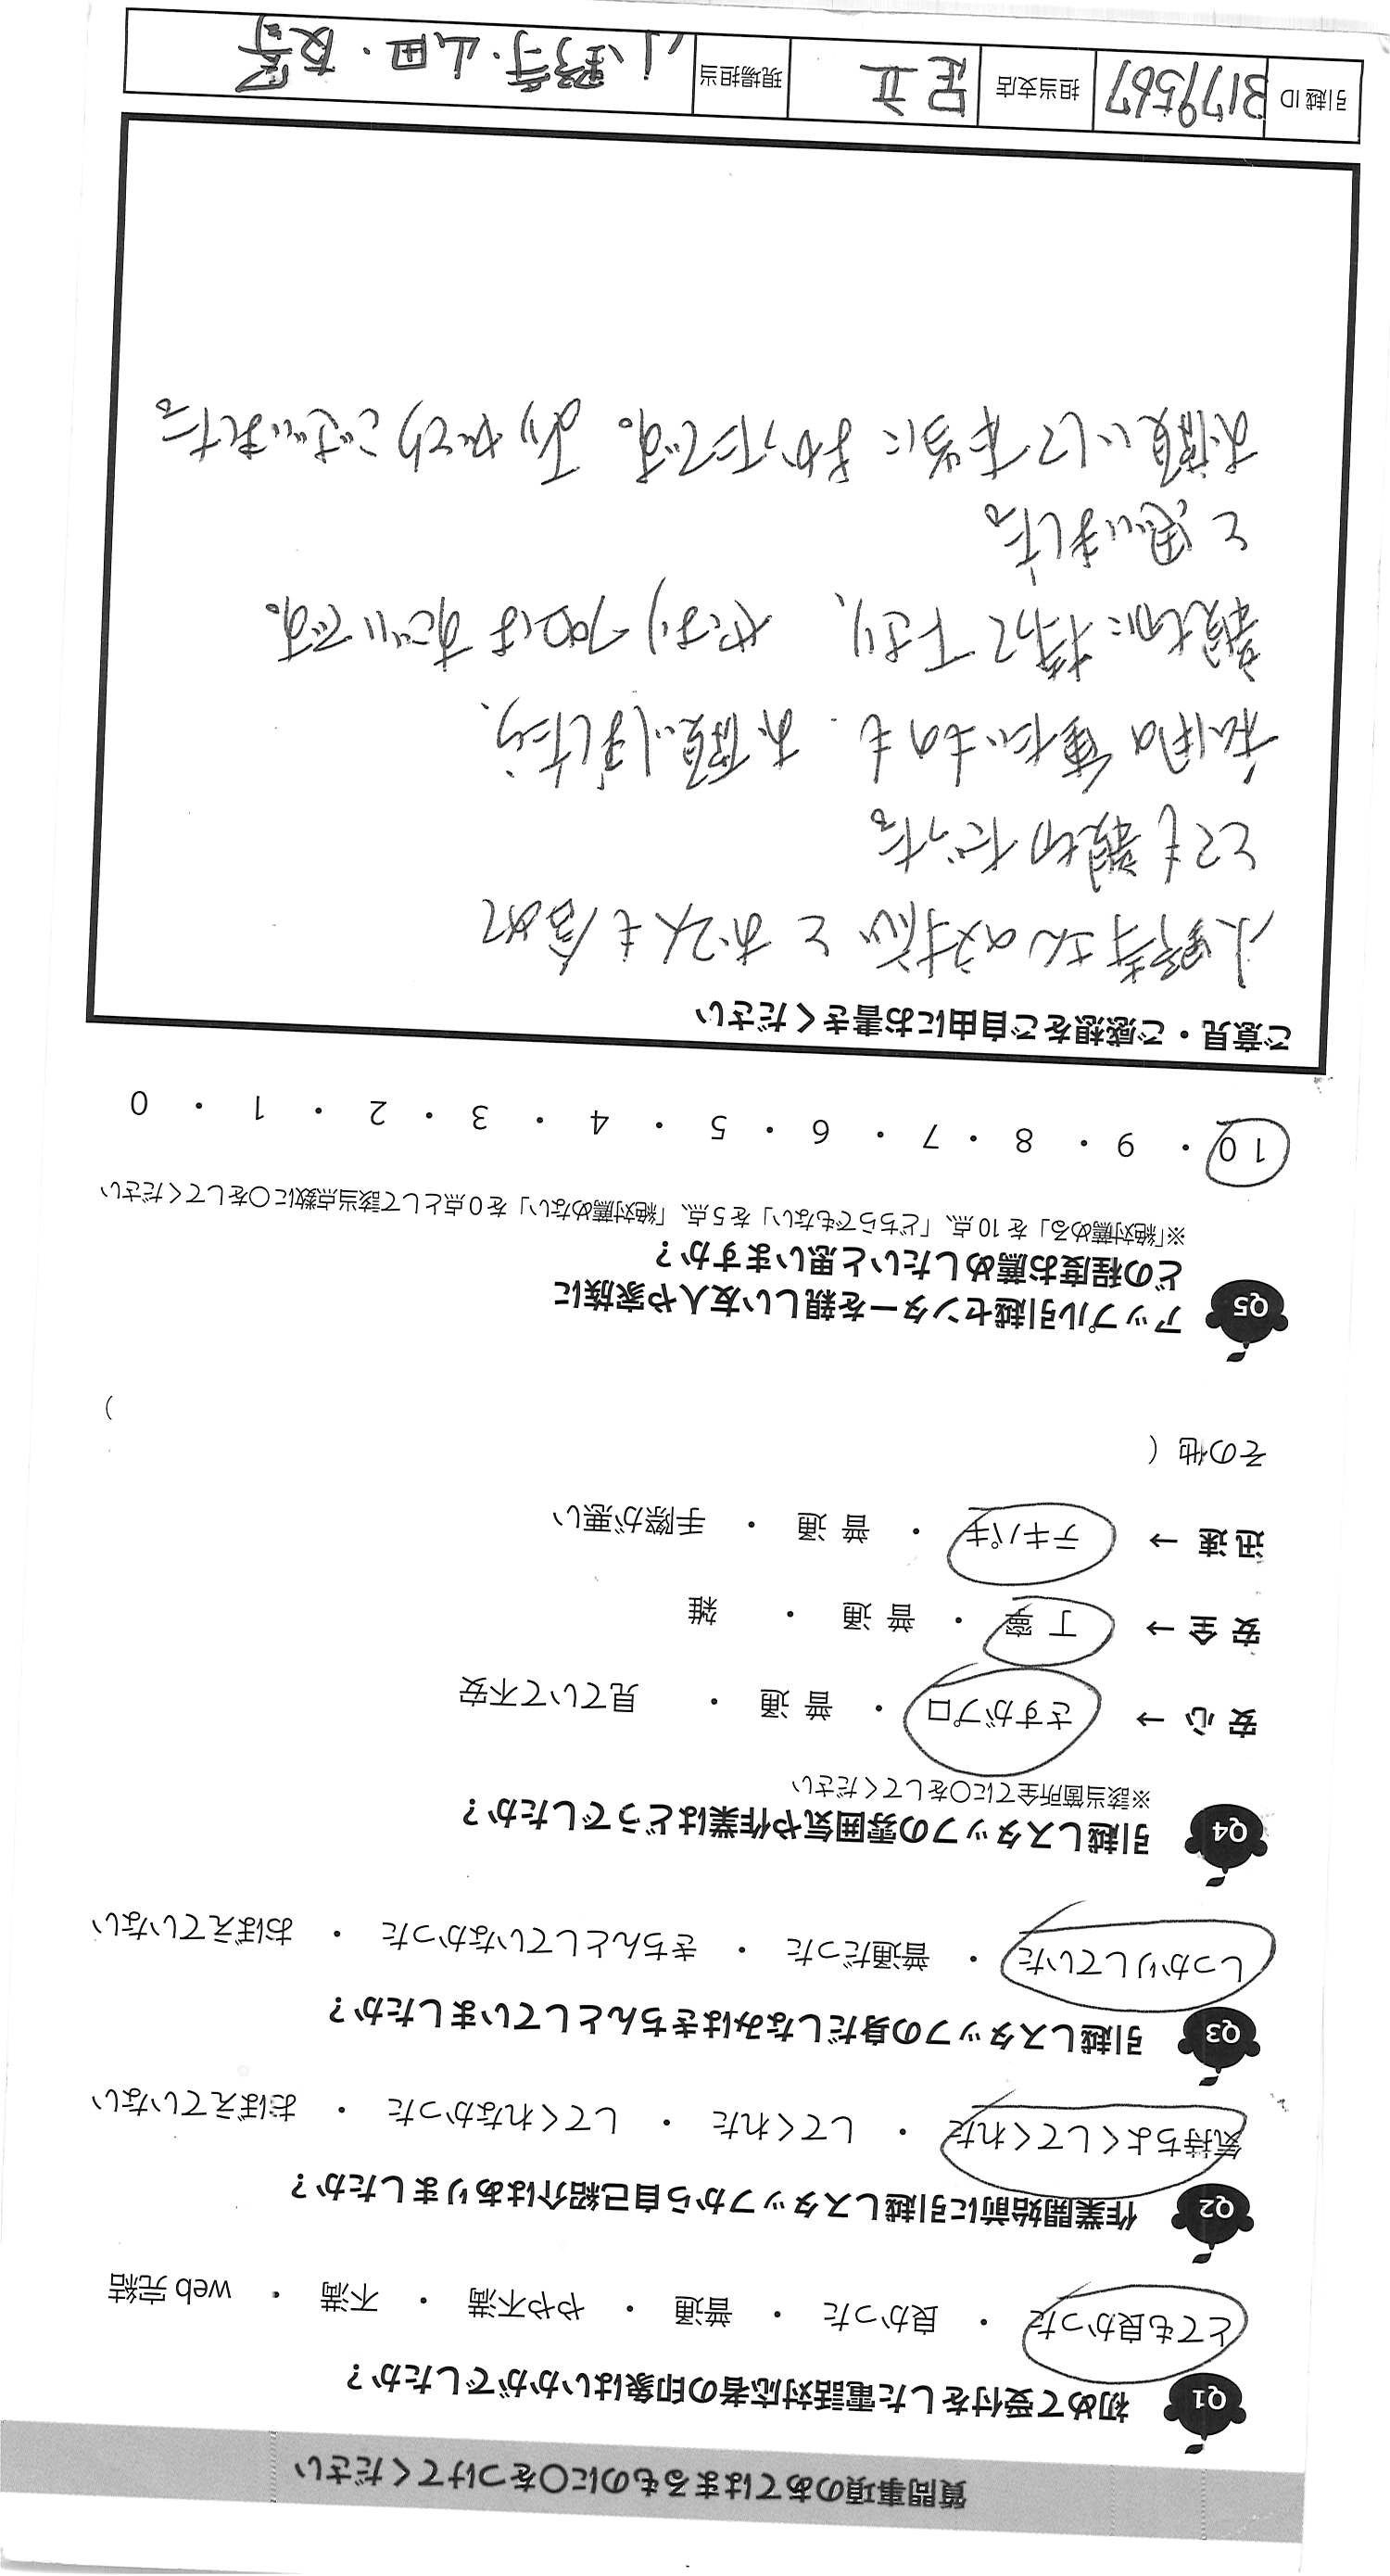 質問事項のあてはまるものに○をつけてください
Q1 初めて受付をした電話対応者の印象はいかがでしたか？
とても良かった ・ 良かった ・ 普通 ・ やや不満 ・ 不満 ・ web 完結
Q2 作業開始前に引越しスタッフから自己紹介はありましたか？
気持ちよくしてくれた ・ してくれた ・ してくれなかった ・ おぼえていない
Q3 引越しスタッフの身だしなみはきちんとしていましたか？
しっかりしていた ・ 普通だった ・ きちんとしていなかった ・ おぼえていない
Q4 引越しスタッフの雰囲気や作業はどうでしたか？
※該当箇所全てに○をしてください
安 心 → さすがプロ ・ 普 通 ・ 見ていて不安
安 全 → 丁 寧 ・ 普 通 ・ 雑
迅 速 → テキパキ ・ 普 通 ・ 手際が悪い
その他（ ）
Q5 アップル引越センターを親しい友人や家族に
どの程度お薦めしたいと思いますか？
※「絶対薦める」を 10 点、「どちらでもない」を 5 点、「絶対薦めない」を 0 点として該当点数に○をしてください
10 ・ 9 ・ 8 ・ 7 ・ 6 ・ 5 ・ 4 ・ 3 ・ 2 ・ 1 ・ 0
ご意見・ご感想をご自由にお書きください
小野寺さんの対応とお2人も含めて
とても親切だった。
重たいものも お願いしましたら、
親切に持って下さり、やはりプロはすごいです。
と思いました。
お願いして本当によかったです。ありがとうございました。
引越 ID 3179567 担当支店 足立 現場担当 小野寺・山田・